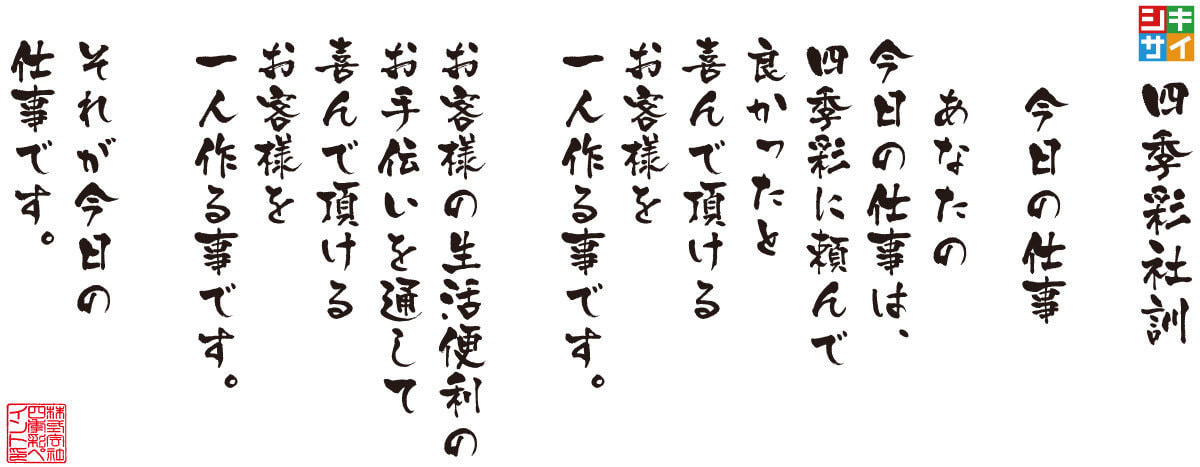 シキ
サイ
四季彩社訓
今日の仕事
あなたの
今日の仕事は、
四季彩に頼んで
良かったと
喜んで頂ける
お客様を
一人作る事です。
お客様の生活便利の
お手伝いを通して
喜んで頂ける
お客様を
一人作る事です。
それが今日の
仕事です。
株式会社
四季彩ペ
イント印